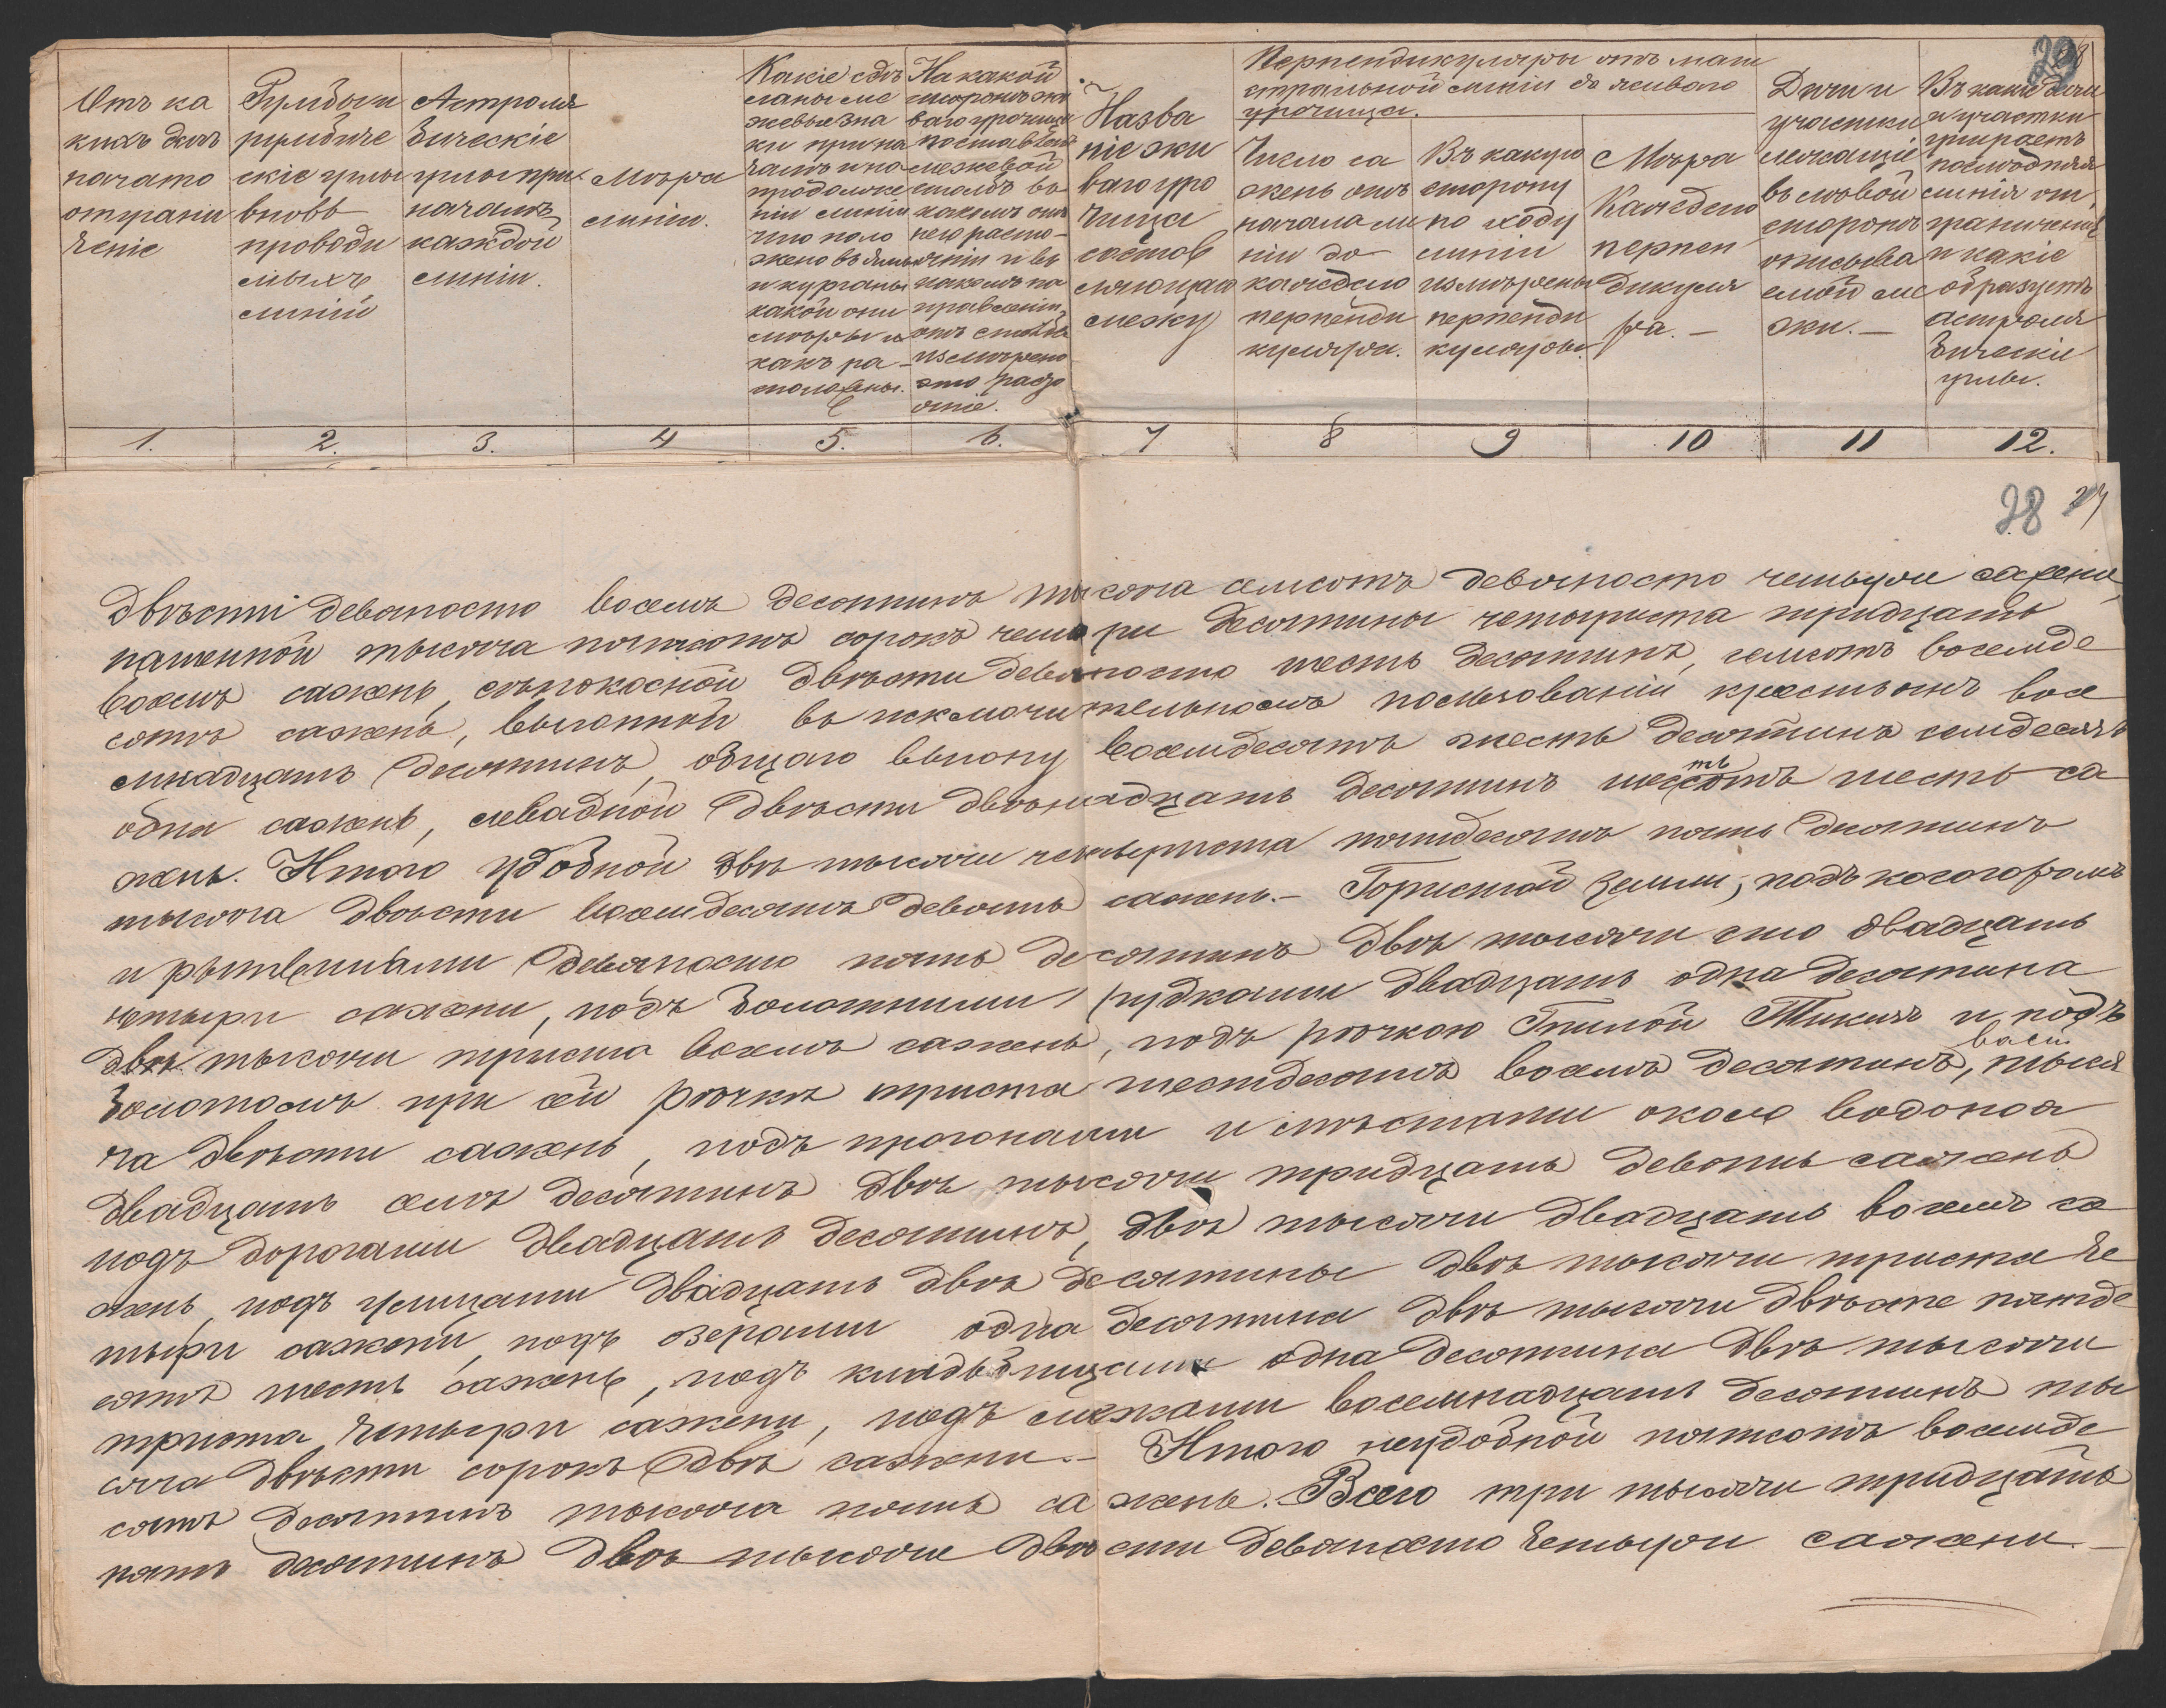 Отъ ка
кихъ дачъ
начато
отграни
ченіе
Румбы и
румбиче
скіе углы
вновь
проводи
мыхъ
линій
Астроля
бическіе
углы при
началѣ
каждой
линіи.
Мѣра
линіи.
Какіе сдѣ
ланы ме
жевые зна
ки при на
чалѣ и на
продолже
ніи линіи
что поло
жено въ ямы
и курганы
какой они
мѣры и
какъ ра-
положены.
На какой
сторонѣ жи
ваго урочища
поставленъ
межевой
столбъ въ
какомъ отъ
него разсто-
яніи и въ
какомъ на
правленіи
отъ столба
измѣрено
это разсто
яніе.
Назва
ніе жи
ваго уро
чища
состав
ляющаго
межу
Перпендикуляры отъ маги
стральной линіи до живаго
урочища.
Число са
жень отъ
начала ли
ніи до
каждаго
перпенди
куляра.
Въ какую
сторону
по ходу
линіи
измѣрены
перпенди
куляры.
Мѣра
каждаго
перпен
дикуля
ра. –
Дачи и
участки
лежащіе
въ лѣвой
сторонѣ
описыва
емой ме
жи. –
Въ какіе дачи
и участки
упираетъ
послѣдняя
линія от
граниченія
и какіе
образуетъ
астроля
бическіе
углы.
29
1. 2. 3. 4 5. 6. 7 8 9 10 11 12.
28 27
двѣсти девяносто восемь десятинъ тысяча семсотъ девяносто четыре сажени,
пашенной тысяча пятьсотъ сорокъ четыре десятины четыреста тридцать
восемь сажень, сѣнокосной двѣсти девяносто шесть десятинъ, семсотъ восемьде
сятъ сажень, выгонной въ исключительномъ пользованіи крестьянъ восе
мнадцать десятинъ, общаго выгону восемдесятъ шесть десятинъ семдесятъ
одна сажень, левадной двѣсти двѣнадцать десятинъ шестьсотъ шесть са
жень. Итого удобной двѣ тысячи четыреста пятдесятъ пять десятинъ
тысяча двѣсти восемдесятъ девять сажень. – Гористой земли, подъ косогоромъ
и рытвинами девяносто пять десятинъ двѣ тысячи сто двадцать
четыре сажени, подъ болотными рудками двадцать одна десятина
двѣ тысячи триста восемь сажень, подъ рѣчкою Гнилой Тикичъ и подъ
болотомъ при сей рѣчкѣ триста шестдесятъ восемь десятинъ, тыся
ча двѣсти сажень, подъ прогонами и мѣстами около водопоя
двадцать семь десятинъ двѣ тысячи тридцать девять сажень
подъ дорогами двадцать десятинъ, двѣ тысячи двадцать восемь са
жень, подъ улицами двадцать двѣ десятины двѣ тысячи триста че
тыре сажени, подъ озерами одна десятина двѣ тысячи двѣсте пятде
сятъ шесть сажень, подъ кладбищами одна десятина двѣ тысячи
триста четыре сажени, подъ межами восемнадцать десятинъ ты
сяча двѣсти сорокъ двѣ сажени. – Итого неудобной пятьсотъ восемьде
сятъ десятинъ тысяча пять сажень. Всего три тысячи тридцать
пять десятинъ двѣ тысячи двѣсти девяносто четыре сажени –